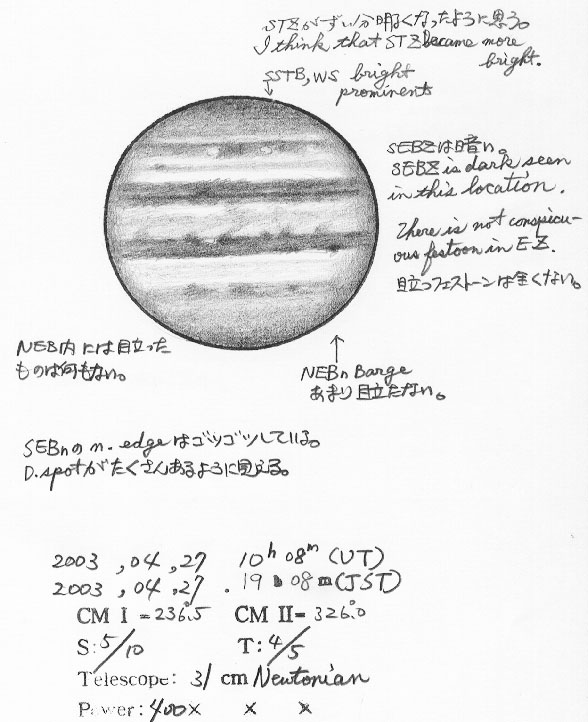 STZがずい分明るくなったように思う。
I think that STZ became more
bright.
SSTB, WS bright
prominent
SEBZは暗い。
SEBZ is dark, seen
in this location.
There is not conspicu-
ous festoon in EZ.
目立つフェストーンは全くない。
NEB内には目立った
ものは何もない。
NEBn Barge
あまり目立たない。
SEBnのn.edgeはゴツゴツしている。
D.spotがたくさんあるように見える。
2003 , 04 , 27 10h 08m (UT)
2003 , 04 , 27 . 19h 08m (JST)
CM I = 236°.5 CM II = 326°.0
S: 5/10 T: 4/5
Telescope: 31 cm Newtonian
Power: 400× × ×